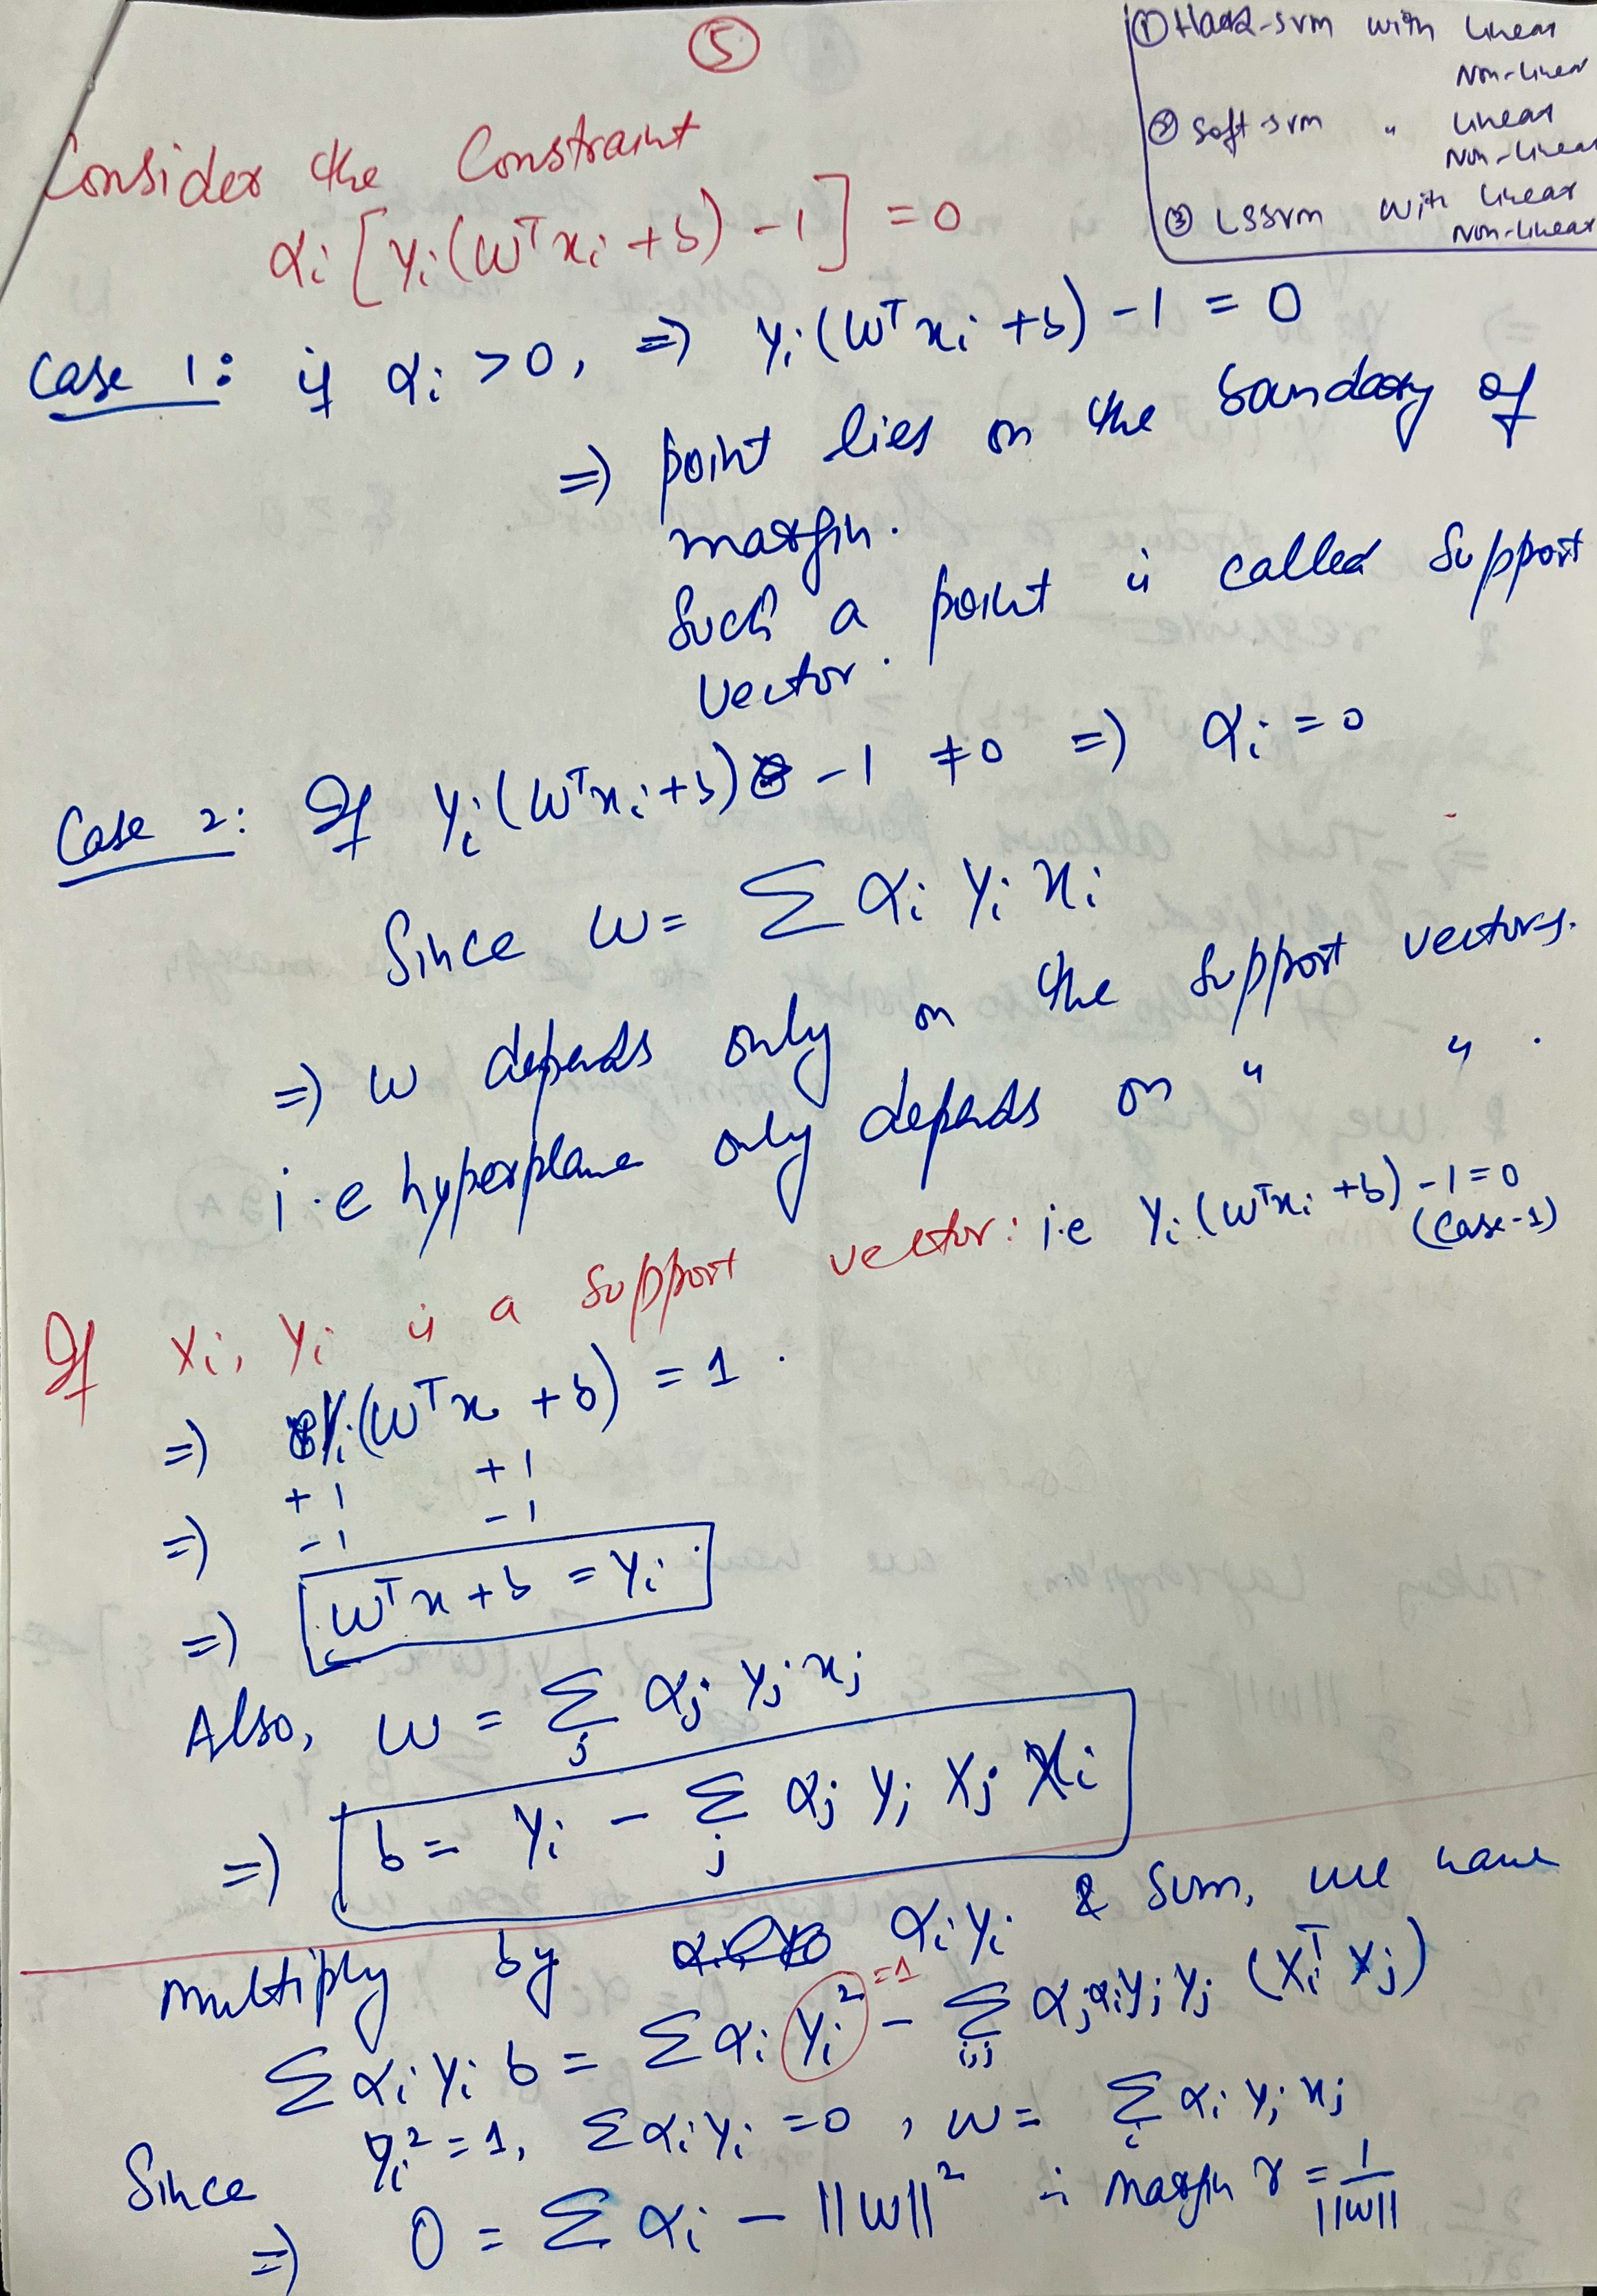 ⑤
① Hard-SVM with Linear
Non-Linear
② Soft-SVM " Linear
Non-Linear
③ LSSVM with Linear
Non-Linear
Consider the Constraint
αi [yi(wᵀxi + b) - 1] = 0
Case 1: if αi > 0, => yi(wᵀxi + b) - 1 = 0
=> point lies on the boundary of
margin.
Such a point is called support
vector.
Case 2: If yi(wᵀxi + b) - 1 ≠ 0 => αi = 0
Since w = Σ αi yi xi
=> w depends only on the support vectors.
i.e hyperplane only depends on " " .
If xi, yi is a support vector: i.e yi(wᵀxi + b) - 1 = 0
(Case-1)
=> yi(wᵀx + b) = 1.
+1 +1
=> -1 -1
=> wᵀx + b = yi
Also, w = Σj αj yj xj
=> b = yi - Σj αj yj xj xi
multiply by αi yi & sum, we have
Σ αi yi b = Σ αi yi² - Σi,j αj αi yi yj (xiᵀ xj)
=1
Since yi² = 1, Σ αi yi = 0, w = Σi αi yi xj
=> 0 = Σ αi - ||w||² ∴ margin γ = 1/||w||